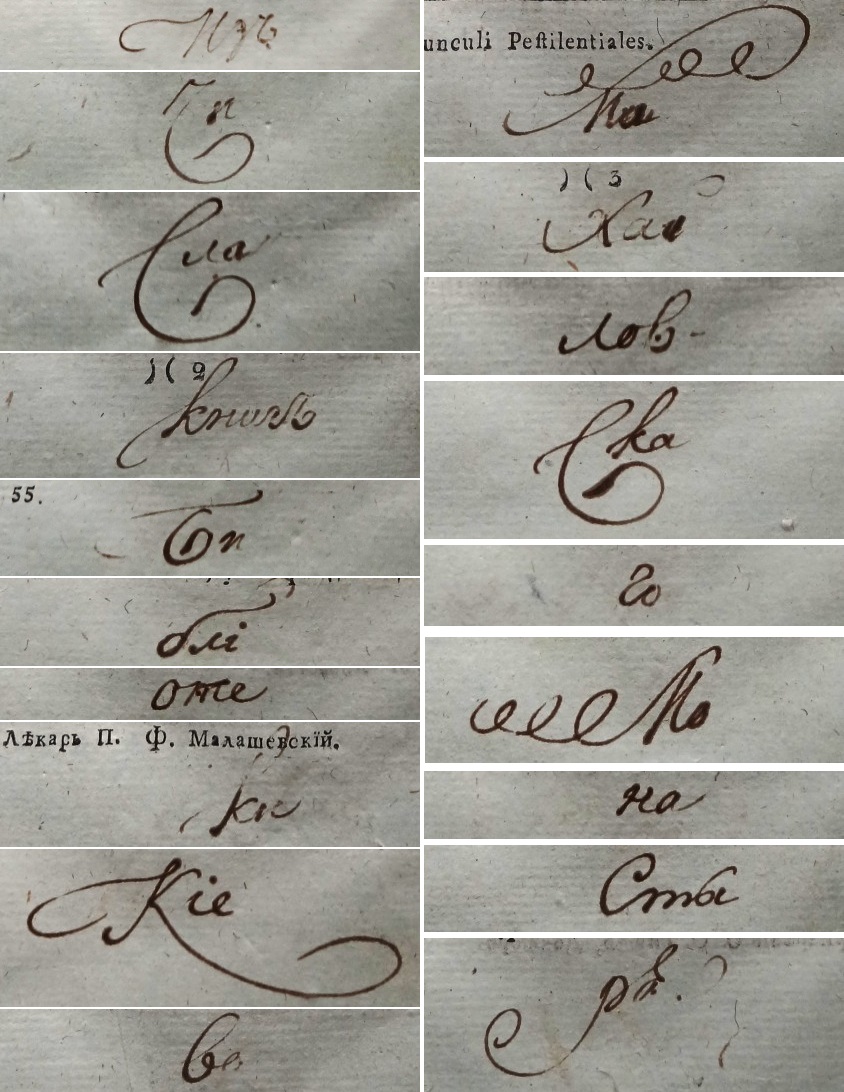 Изъ
Чи
Сла
)( 2
книгъ
55.
Би
блі
оте
Лѣкарь П. Ф. Малашевскїй.
ки
Кіе
во
unculi Peſtilentiales.
Ми
)( 3
Хай
лов-
Ска
го
Мо
на
Сты
ря.